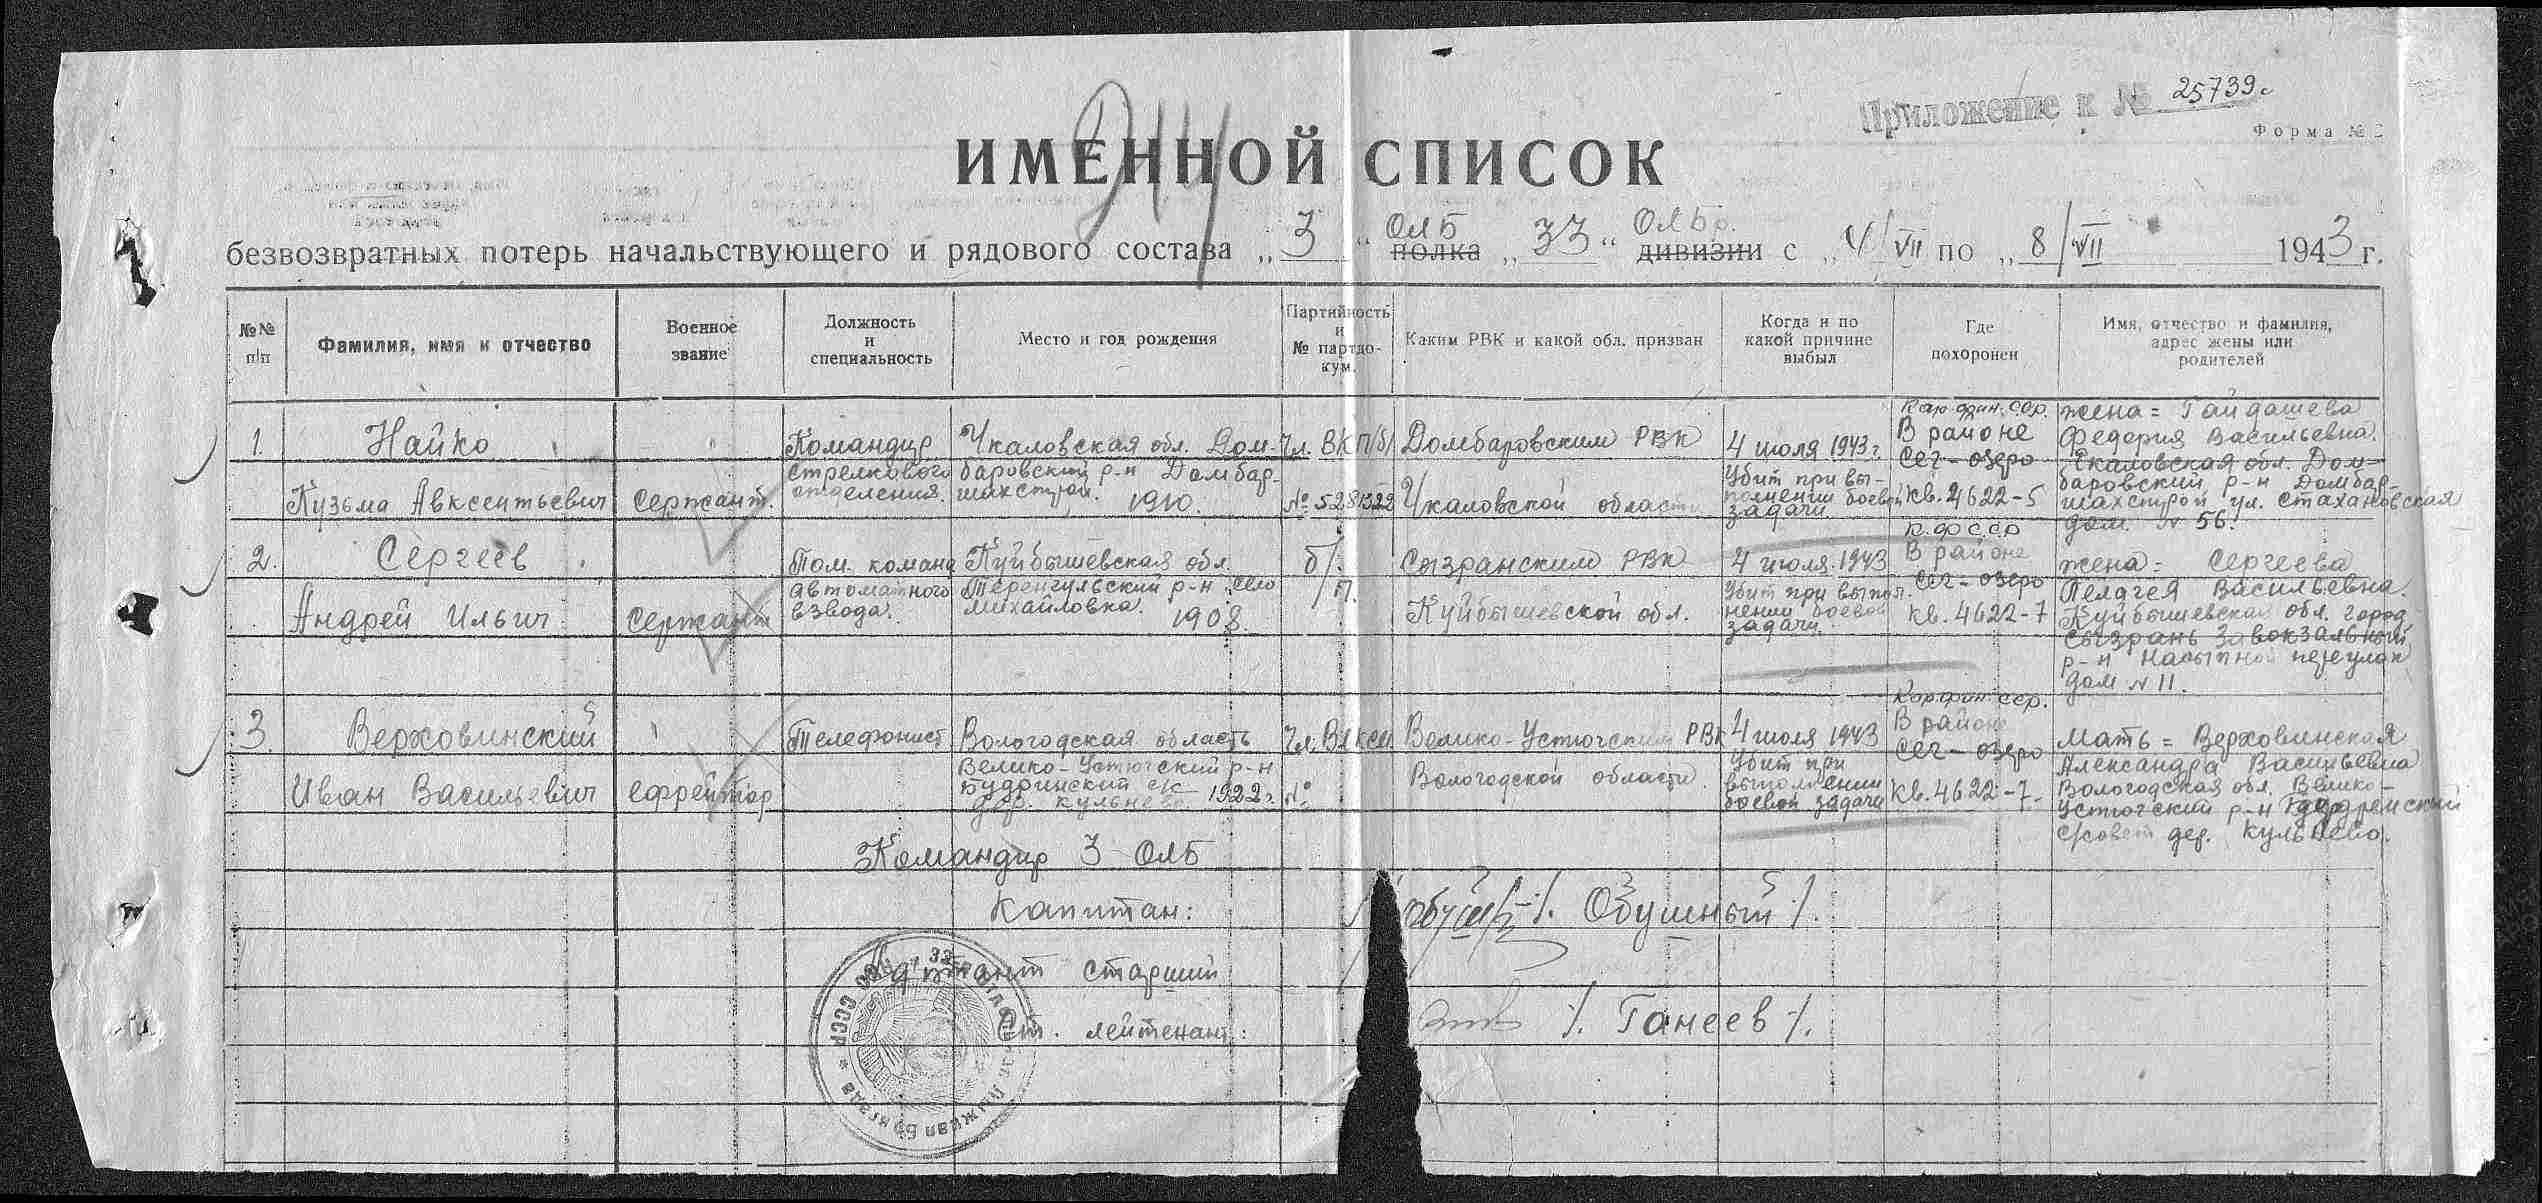 Приложение к № 25739с
Форма № 2
244
ИМЕННОЙ СПИСОК
безвозвратных потерь начальствующего и рядового состава „3“ ОЛБ полка „33“ ОЛБр. дивизии с „4/VII по „8/VII 1943 г.
№№ п/п
Фамилия, имя и отчество
Военное звание
Должность и специальность
Место и год рождения
Партийность и № партдокум.
Каким РВК и какой обл. призван
Когда и по какой причине выбыл
Где похоронен
Имя, отчество и фамилия, адрес жены или родителей
1.
Найко
Кузьма Авксентьевич
сержант.
Командир
стрелкового
отделения.
Чкаловская обл. Дом-
баровский р-н Домбар-
шахстрой.
1910.
Чл. ВКП/б/
№ 5281322
Домбаровским РВК
Чкаловской области
4 июля 1943 г.
Убит при вы-
полнении боевой
задачи
Кар-фин. ССР.
В районе
Сег-озеро
кв. 4622-5
жена = Гайдашева
Федерия Васильевна.
Чкаловская обл. Дом-
баровский р-н Домбар-
шахстрой ул. Стахановская
дом. № 56.
2.
Сергеев
Андрей Ильич
сержант
Пом. команд
автоматного
взвода.
Куйбышевская обл.
Теренгульский р-н село
Михайловка.
1908.
б/п.
Сызранским РВК
Куйбышевской обл.
4 июля 1943
Убит при выпол.
нении боевой
задачи.
К.ФССР
В районе
Сег-озеро
кв. 4622-7
жена = Сергеева
Пелагея Васильевна.
Куйбышевская обл. город
Сызрань Завокзальный
р-н Насыпной переулок
дом № 11.
3.
Верховинский
Иван Васильевич
ефрейтор
Телефонист
Вологодская область
Велико-Устюгский р-н
Будринский с/с
дер. Кульнево. 1922 г.
Чл. ВЛКСМ
№
Велико-Устюгский РВК
Вологодской области
4 июля 1943
Убит при
выполнении
боевой задачи
Кар.фин. сср.
В районе
Сег-озеро
кв. 4622-7.
Мать = Верховинская
Александра Васильевна
Вологодская обл. Велико-
Устюгский р-н
с/совет дер. Кульнево.
Командир 3 ОЛБ
Капитан: /. Обушный /.
Адъютант старший
Ст. лейтенант: /. Ганеев /.
НКО СССР
Лыжная Бригада